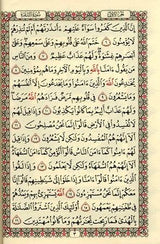 إِنَّ الَّذِينَ كَفَرُوا سَوَاءٌ عَلَيْهِمْ ءَأَنذَرْتَهُمْ أَمْ لَمْ تُنذِرْهُمْ
لَا يُؤْمِنُونَ ۝٦ خَتَمَ اللَّهُ عَلَىٰ قُلُوبِهِمْ وَعَلَىٰ سَمْعِهِمْ وَعَلَىٰ
أَبْصَارِهِمْ غِشَاوَةٌ وَلَهُمْ عَذَابٌ عَظِيمٌ ۝٧ وَمِنَ النَّاسِ
مَن يَقُولُ ءَامَنَّا بِاللَّهِ وَبِالْيَوْمِ الْآخِرِ وَمَا هُم بِمُؤْمِنِينَ ۝٨
يُخَادِعُونَ اللَّهَ وَالَّذِينَ ءَامَنُوا وَمَا يَخْدَعُونَ إِلَّا أَنفُسَهُمْ وَمَا
يَشْعُرُونَ ۝٩ فِي قُلُوبِهِم مَّرَضٌ فَزَادَهُمُ اللَّهُ مَرَضًا
وَلَهُمْ عَذَابٌ أَلِيمٌ بِمَا كَانُوا يَكْذِبُونَ ۝١٠ وَإِذَا قِيلَ لَهُمْ
لَا تُفْسِدُوا فِي الْأَرْضِ قَالُوا إِنَّمَا نَحْنُ مُصْلِحُونَ ۝١١
أَلَا إِنَّهُمْ هُمُ الْمُفْسِدُونَ وَلَٰكِن لَّا يَشْعُرُونَ ۝١٢ وَإِذَا قِيلَ
لَهُمْ ءَامِنُوا كَمَا ءَامَنَ النَّاسُ قَالُوا أَنُؤْمِنُ كَمَا ءَامَنَ السُّفَهَاءُ
أَلَا إِنَّهُمْ هُمُ السُّفَهَاءُ وَلَٰكِن لَّا يَعْلَمُونَ ۝١٣ وَإِذَا لَقُوا
الَّذِينَ ءَامَنُوا قَالُوا ءَامَنَّا وَإِذَا خَلَوْا إِلَىٰ شَيَاطِينِهِمْ قَالُوا إِنَّا
مَعَكُمْ إِنَّمَا نَحْنُ مُسْتَهْزِءُونَ ۝١٤ اللَّهُ يَسْتَهْزِئُ بِهِمْ وَيَمُدُّهُمْ فِي
طُغْيَانِهِمْ يَعْمَهُونَ ۝١٥ أُولَٰئِكَ الَّذِينَ اشْتَرَوُا الضَّلَالَةَ
بِالْهُدَىٰ فَمَا رَبِحَت تِّجَارَتُهُمْ وَمَا كَانُوا مُهْتَدِينَ ۝١٦
٣